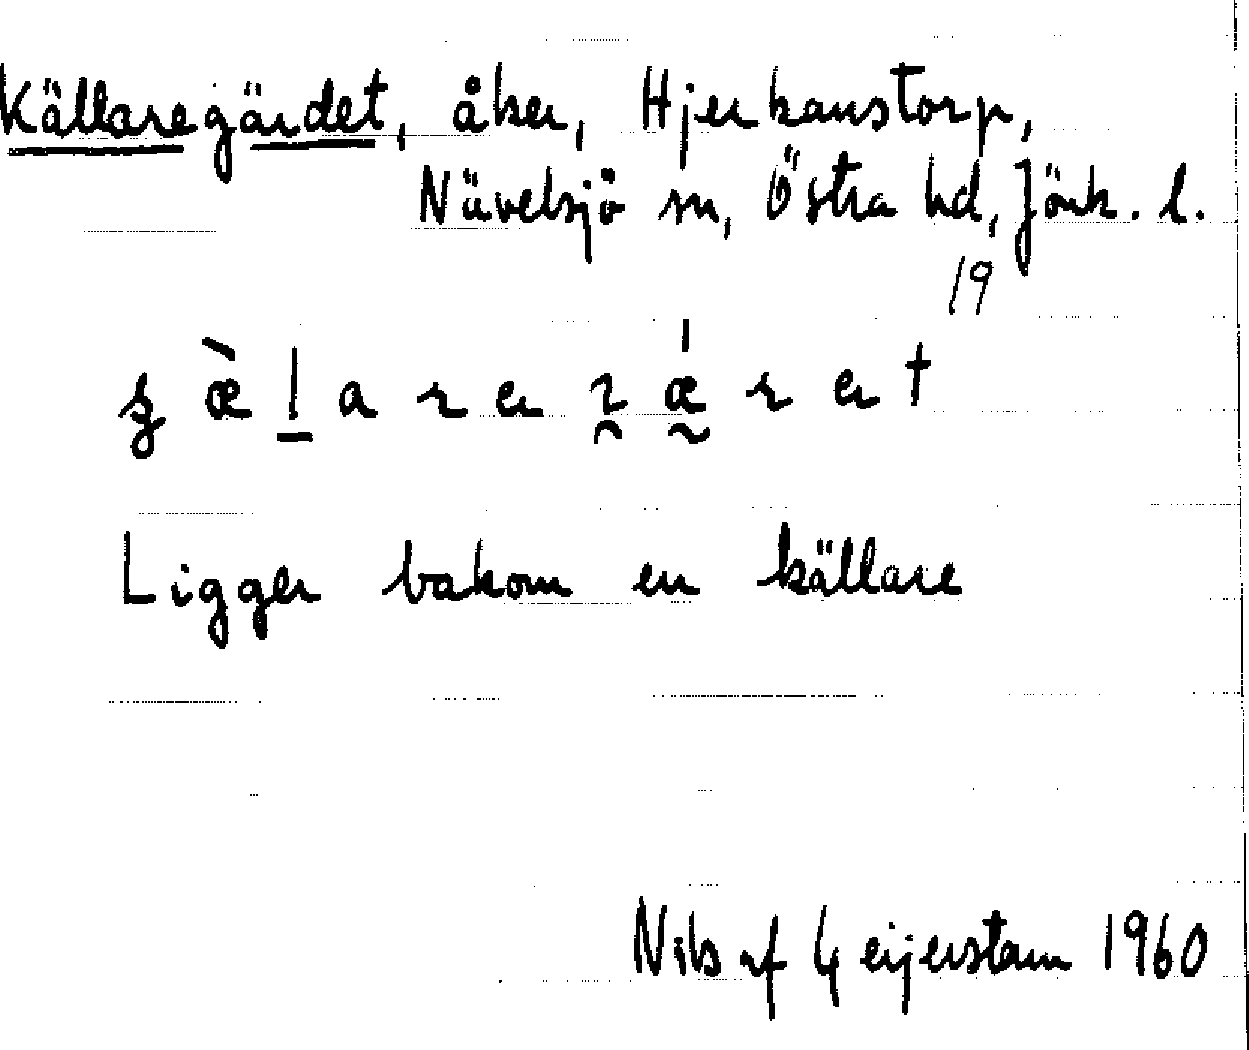 Källaregärdet, åker, Hjerkanstorp,
Nävelsjö sn, Östra hd, Jönk. l.
19
Ligger bakom en källare
Nils af Geijerstam 1960